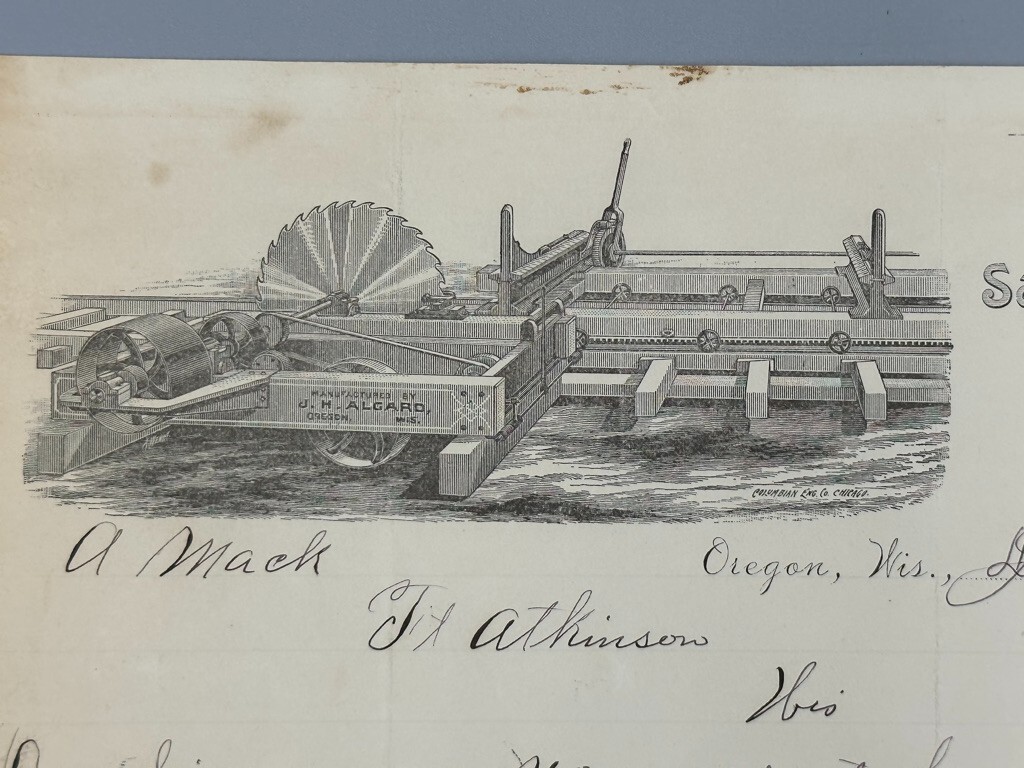 MANUFACTURED BY
J. H. ALGARD,
OREGON, WIS.
COLUMBIAN ENG. CO. CHICAGO.
A Mack
Oregon, Wis.,
Ft Atkinson
Wis